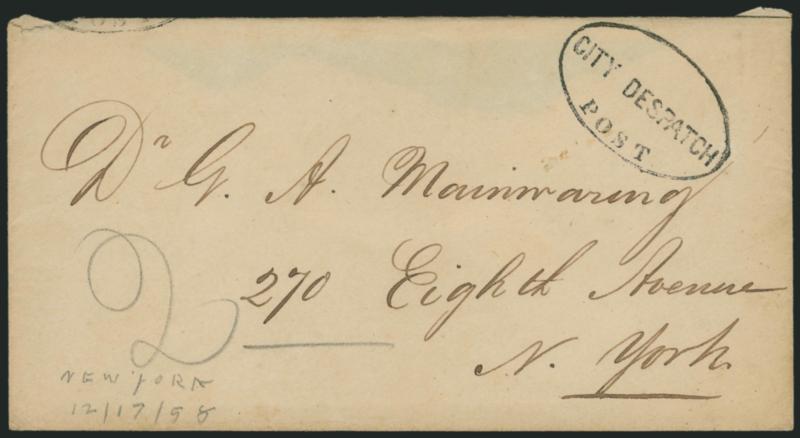 POST
CITY DESPATCH
POST
Dr G. A. Mainwaring
270 Eighth Avenue
N. York
2
NEW YORK
12/17/58